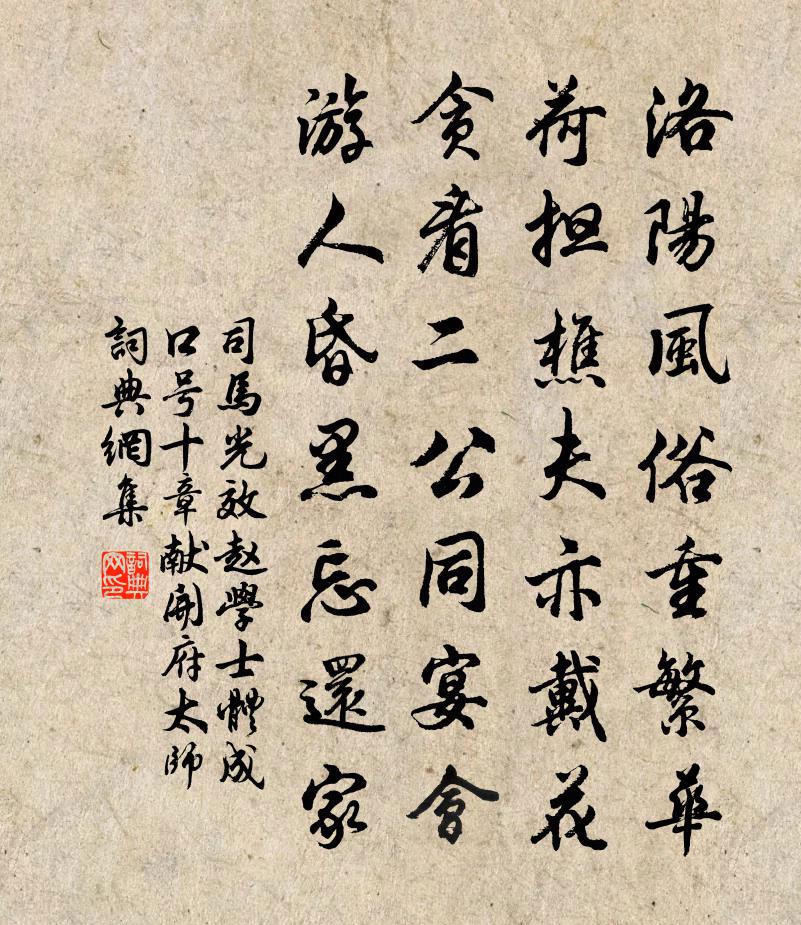 洛陽風俗重繁華
荷担樵夫亦戴花
贪看二公同宴會
游人昏黑忘還家
司馬光效赵學士體成
口号十章献開府太師
詞典網集
詞典网印